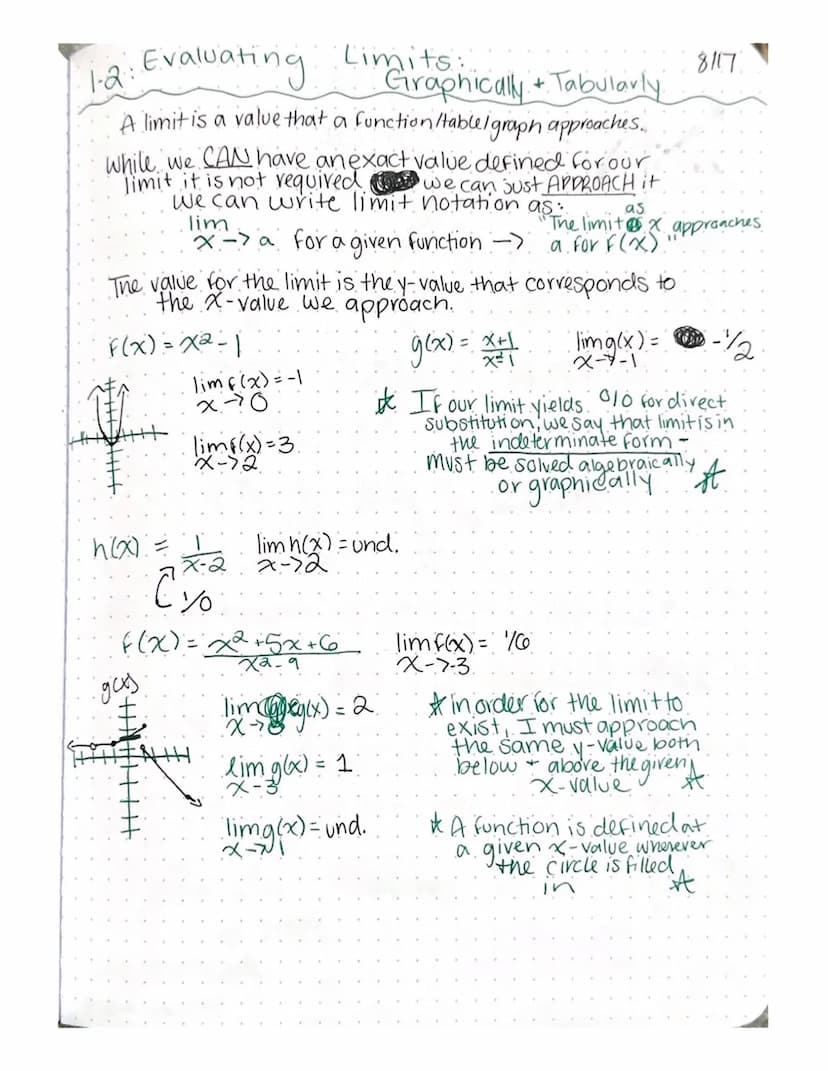 1-2: Evaluating Limits: 8/17
Graphically + Tabularly
A limit is a value that a function/table/graph approaches.
While we CAN have an exact value defined for our
limit it is not required we can just APPROACH it
we can write limit notation as:
lim
x -> a for a given function -> "The limit as x approaches
a for f(x)"
The value for the limit is the y-value that corresponds to
the x-value we approach.
f(x) = x² - 1
lim f(x) = -1
x -> 0
lim f(x) = 3
x -> 2
g(x) = x+1 / x²-1 lim g(x) = -1/2
x -> -1
☆ If our limit yields 0/0 for direct
substitution, we say that limit is in
the indeterminate form -
must be solved algebraically
or graphically ☆
h(x) = 1 / x-2 lim h(x) = und.
x -> 2
1/0
f(x) = x² + 5x + 6 / x² - 9 lim f(x) = 1/6
x -> -3
g(x)
lim g(x) = 2
x ->
lim g(x) = 1
x - 3
lim g(x) = und.
x -> 1
☆ in order for the limit to
exist, I must approach
the same y-value both
below + above the given
x-value ☆
☆ A function is defined at
a given x-value wherever
the circle is filled
in ☆